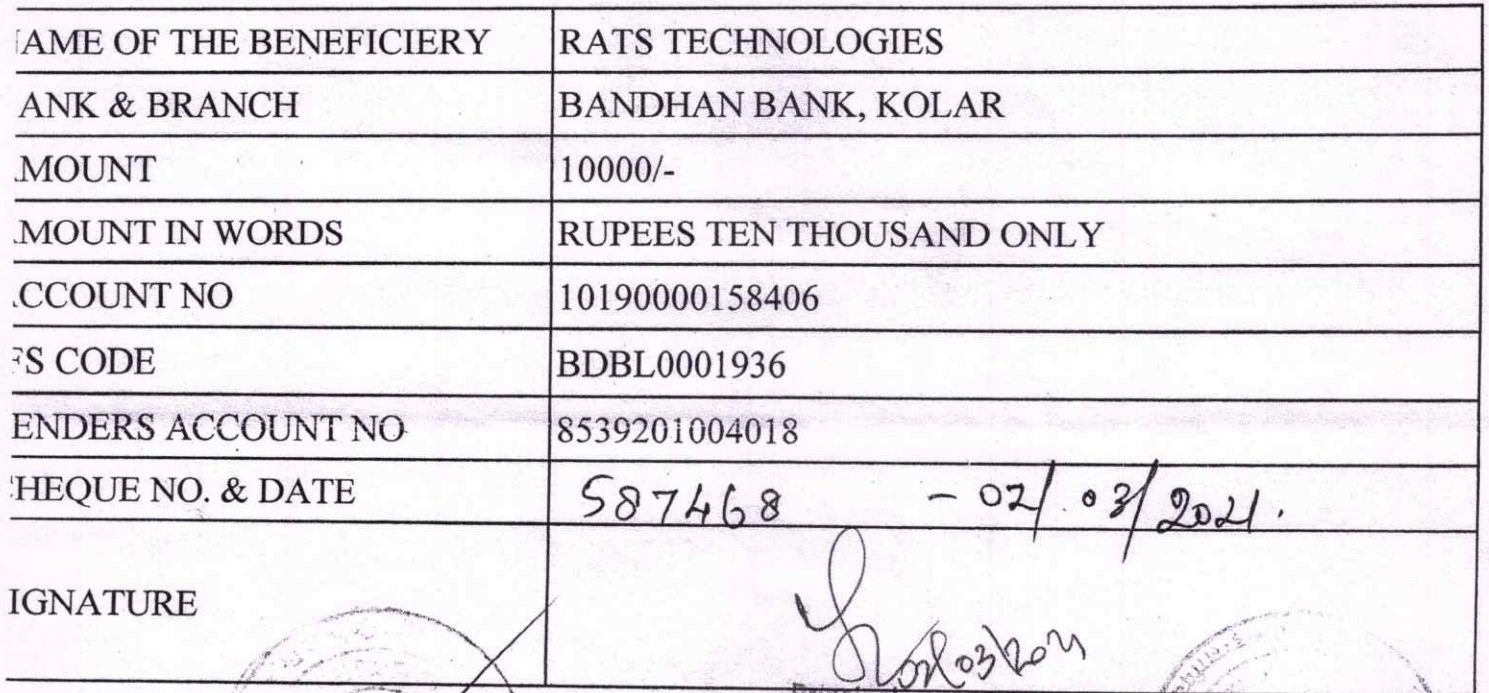 AME OF THE BENEFICIERY RATS TECHNOLOGIES
ANK & BRANCH BANDHAN BANK, KOLAR
MOUNT 10000/-
MOUNT IN WORDS RUPEES TEN THOUSAND ONLY
CCOUNT NO 10190000158406
FS CODE BDBL0001936
ENDERS ACCOUNT NO 8539201004018
HEQUE NO. & DATE 587468 - 02/03/2021.
IGNATURE